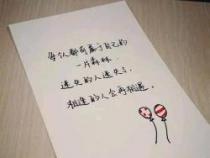 每个人都有属于自己的
一片森林
迷失的人迷失了,
相逢的人会再相逢。